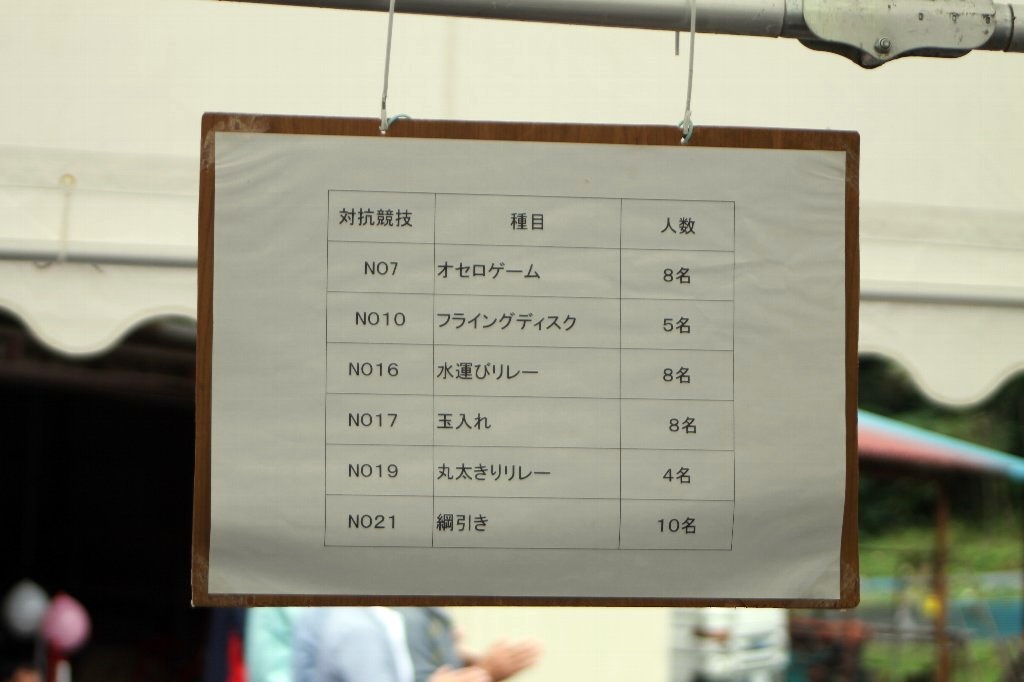 対抗競技 種目 人数
NO7 オセロゲーム 8名
NO10 フライングディスク 5名
NO16 水運びリレー 8名
NO17 玉入れ 8名
NO19 丸太きりリレー 4名
NO21 綱引き 10名